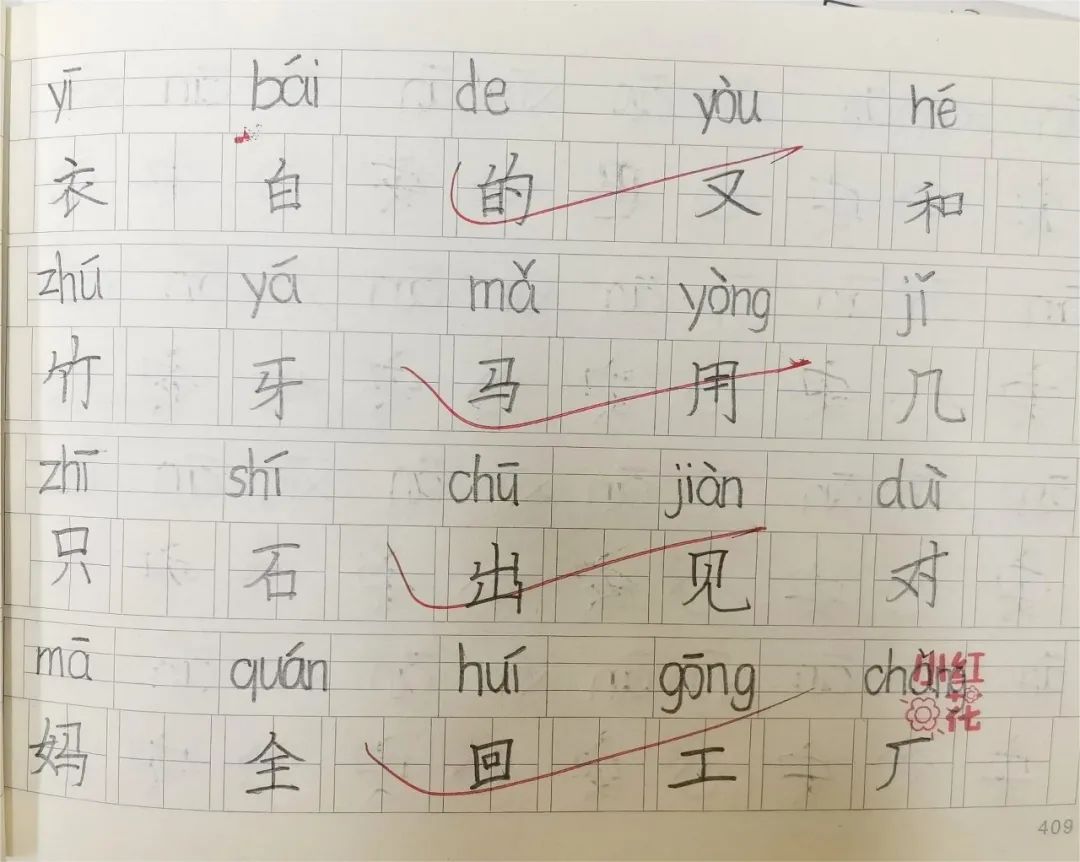 yī bái de yòu hé
衣 白 的 又 和
zhú yá mǎ yòng jǐ
竹 牙 马 用 几
zhī shí chū jiàn duì
只 石 出 见 对
mā quán huí gōng chǎng
妈 全 回 工 厂
小红花
409